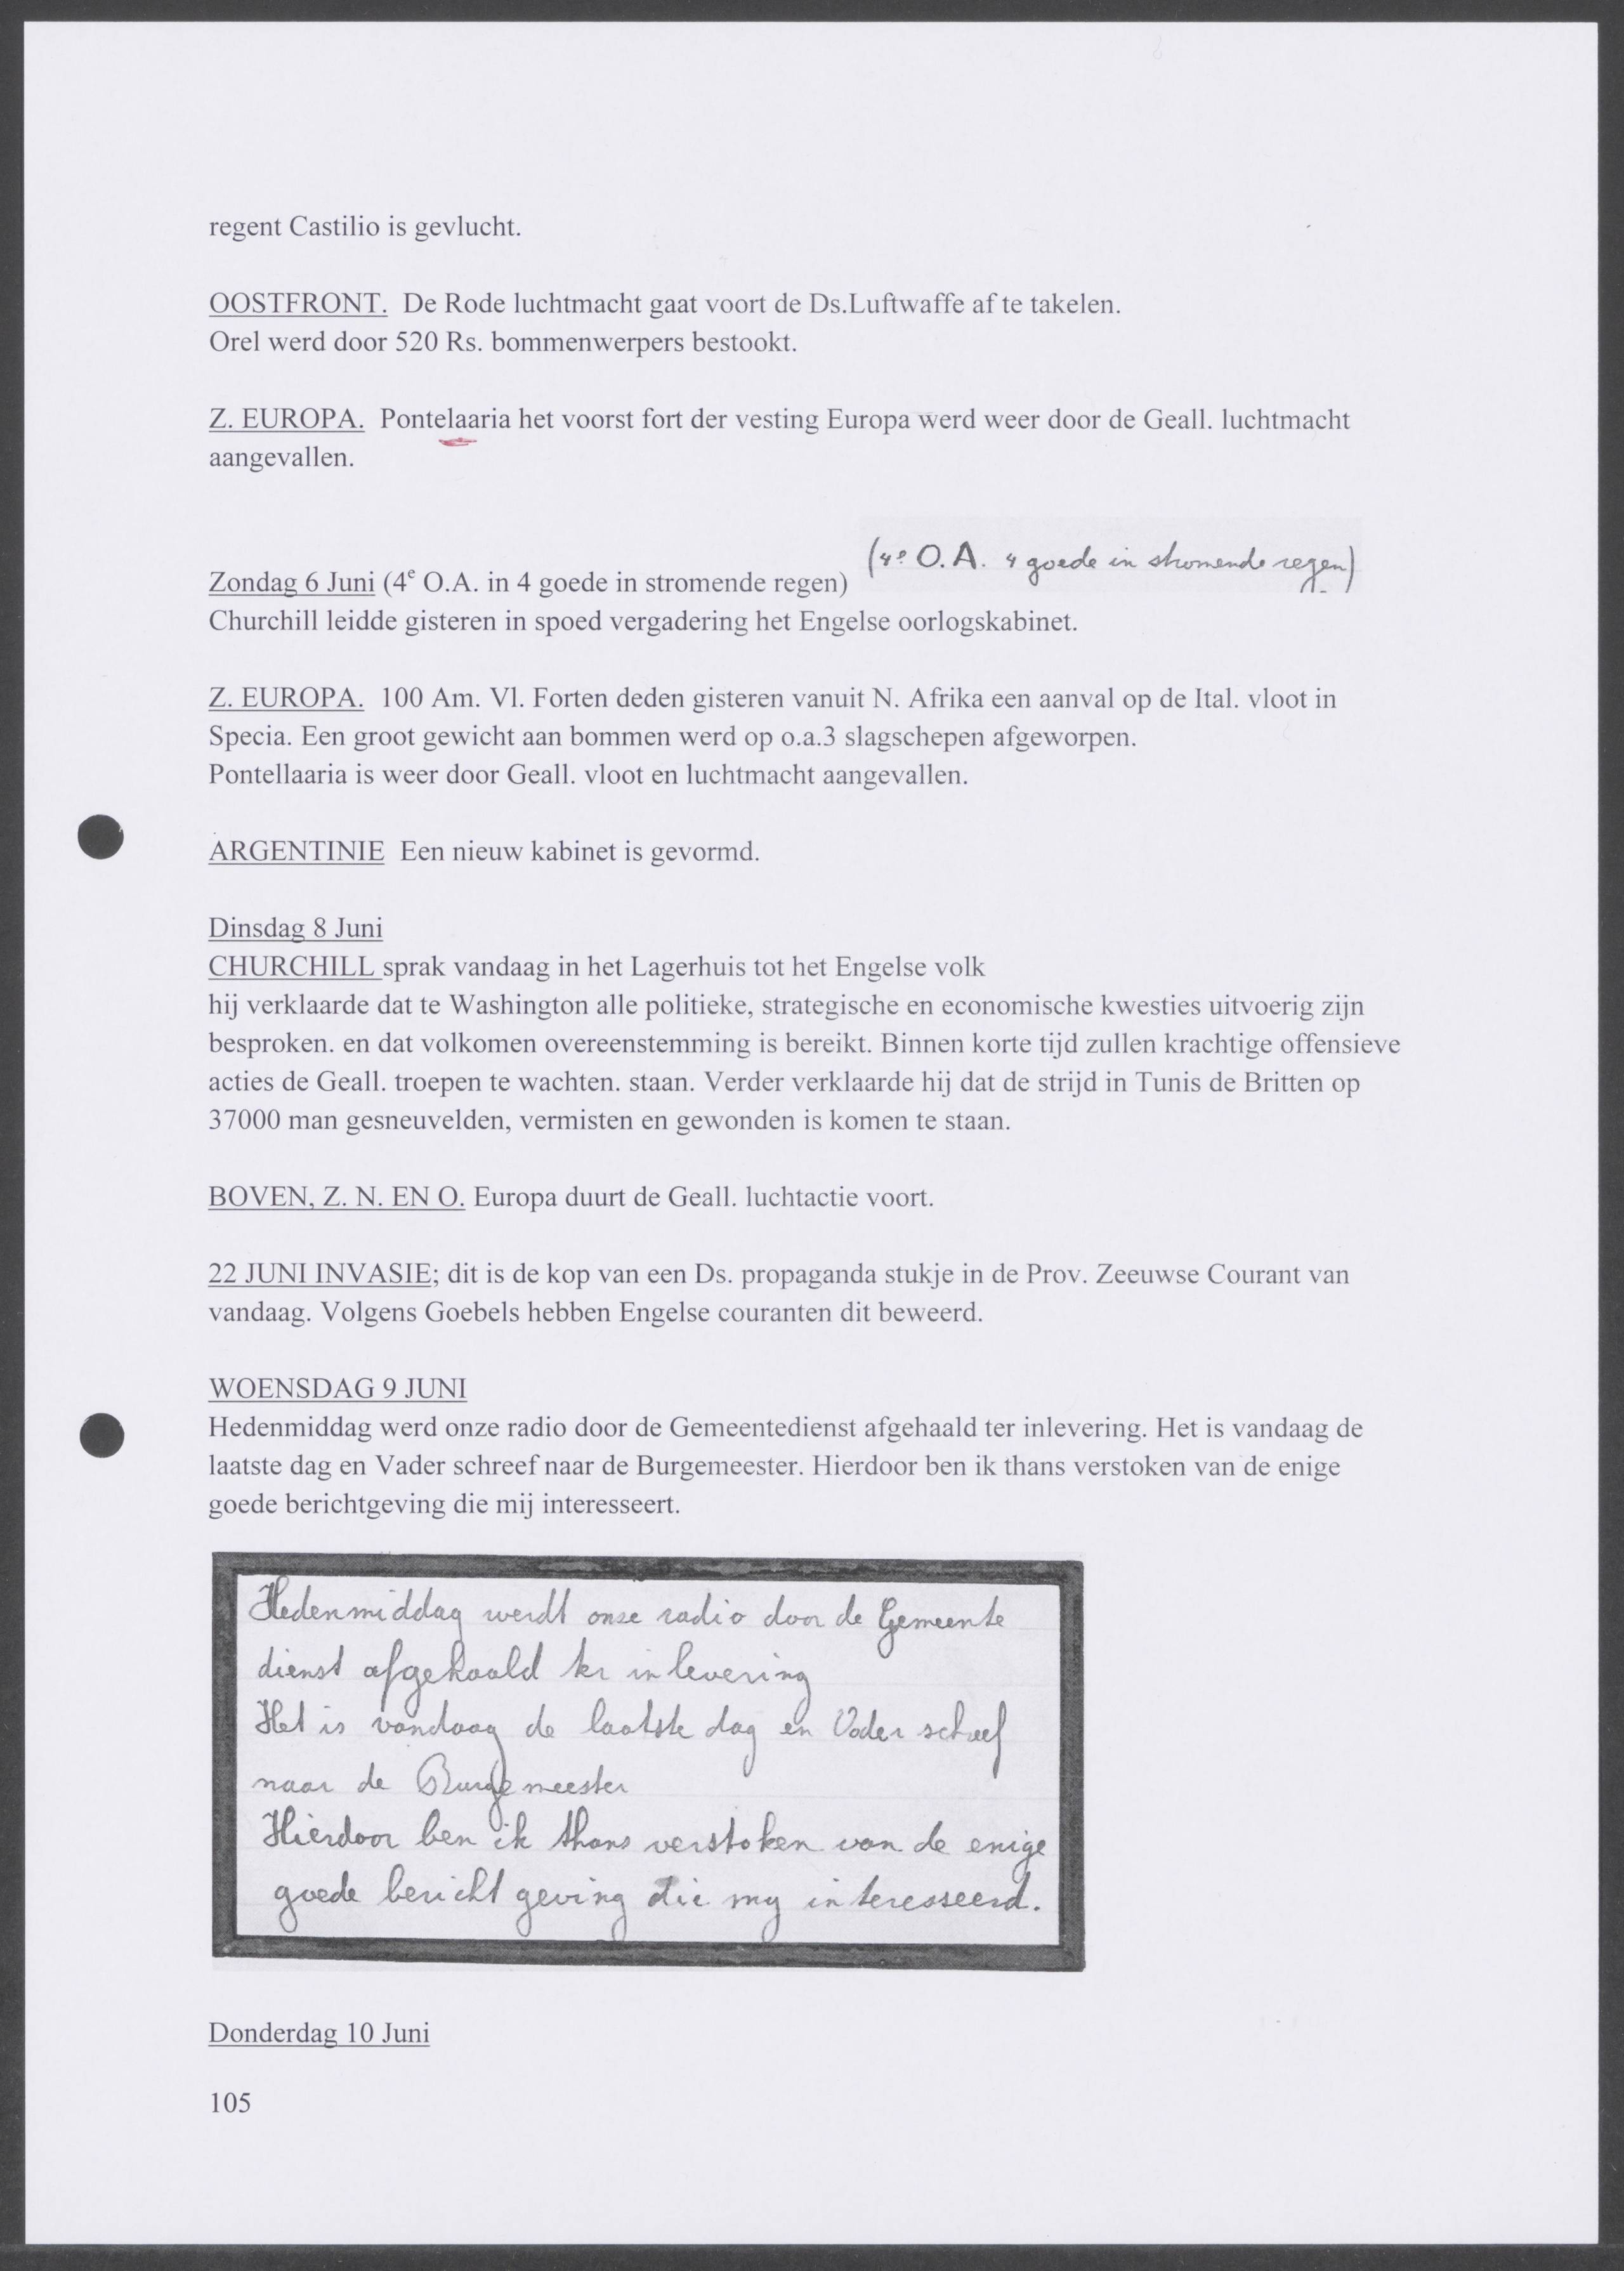 regent Castilio is gevlucht.
OOSTFRONT. De Rode luchtmacht gaat voort de Ds.Luftwaffe af te takelen.
Orel werd door 520 Rs. bommenwerpers bestookt.
Z. EUROPA. Pontelaaria het voorst fort der vesting Europa werd weer door de Geall. luchtmacht
aangevallen.
(4e O.A. 4 goede in stromende regen)
Zondag 6 Juni (4e O.A. in 4 goede in stromende regen)
Churchill leidde gisteren in spoed vergadering het Engelse oorlogskabinet.
Z. EUROPA. 100 Am. Vl. Forten deden gisteren vanuit N. Afrika een aanval op de Ital. vloot in
Specia. Een groot gewicht aan bommen werd op o.a.3 slagschepen afgeworpen.
Pontellaaria is weer door Geall. vloot en luchtmacht aangevallen.
ARGENTINIE Een nieuw kabinet is gevormd.
Dinsdag 8 Juni
CHURCHILL sprak vandaag in het Lagerhuis tot het Engelse volk
hij verklaarde dat te Washington alle politieke, strategische en economische kwesties uitvoerig zijn
besproken. en dat volkomen overeenstemming is bereikt. Binnen korte tijd zullen krachtige offensieve
acties de Geall. troepen te wachten. staan. Verder verklaarde hij dat de strijd in Tunis de Britten op
37000 man gesneuvelden, vermisten en gewonden is komen te staan.
BOVEN, Z. N. EN O. Europa duurt de Geall. luchtactie voort.
22 JUNI INVASIE; dit is de kop van een Ds. propaganda stukje in de Prov. Zeeuwse Courant van
vandaag. Volgens Goebels hebben Engelse couranten dit beweerd.
WOENSDAG 9 JUNI
Hedenmiddag werd onze radio door de Gemeentedienst afgehaald ter inlevering. Het is vandaag de
laatste dag en Vader schreef naar de Burgemeester. Hierdoor ben ik thans verstoken van de enige
goede berichtgeving die mij interesseert.
Hedenmiddag werdt onze radio door de Gemeente
dienst afgehaald ter inlevering
Het is vandaag de laatste dag en Vader schreef
naar de Burgemeester
Hierdoor ben ik thans verstoken van de enige
goede bericht geving die my interesseerd.
Donderdag 10 Juni
105